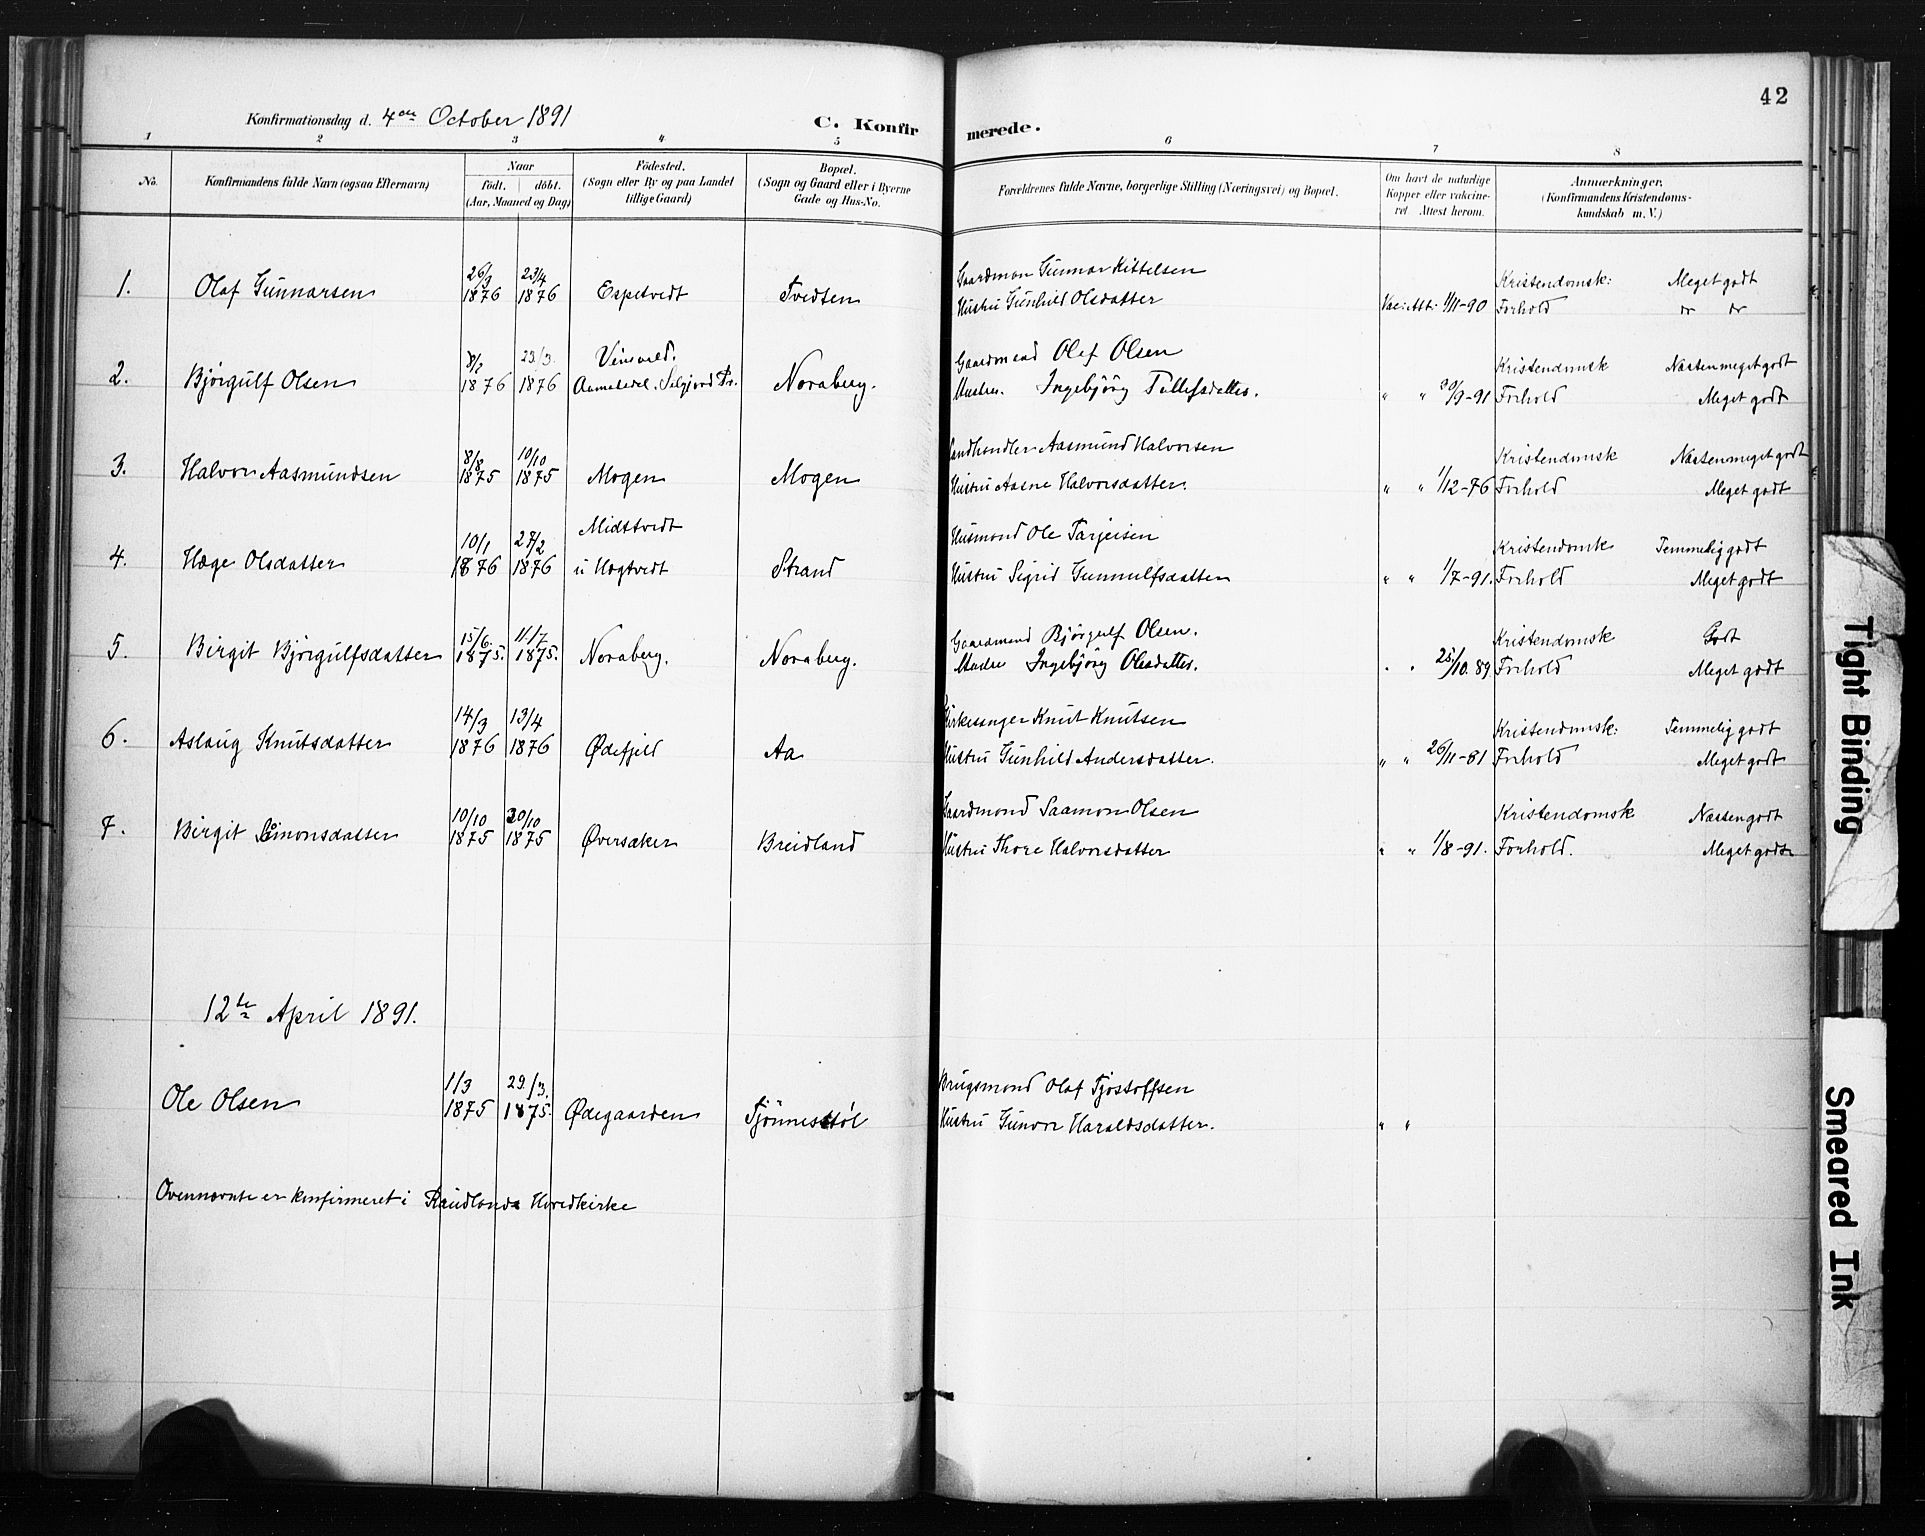 42
Konfirmationsdag d. 4de October 1891
C. Konfirmerede.
1 2 3 4 5 6 7 8
No.
Konfirmandens fulde Navn (ogsaa Efternavn)
Naar
født. døbt.
(Aar, Maaned og Dag)
Födested.
(Sogn eller By og paa Landet
tillige Gaard)
Bopæl.
(Sogn og Gaard eller i Byerne
Gade og Hus-No.
Forældrenes fulde Navne, borgerlige Stilling (Næringsvei) og Bopæl.
Om havt de naturlige
Kopper eller vakcine-
ret Attest herom.
Anmærkninger.
(Konfirmandens Kristendoms-
kundskab m. V.)
26/3 23/4 Gaardman Gunnar Kittelsen Kristendomsk: Meget godt
1. Olaf Gunnarsen 1876 1876 Espetvedt Tvedten Hustru Gunhild Olsdatter Vac: Att: 1/11-90 Forhold " "
8/2 23/3. Gaardmand Olef Olsen Kristendomsk Næsten meget godt
2. Bjørgulf Olsen 1876 1876 Selgjord Pr. Noraberg. Hustru. Ingebjörg Tellefsdatter. " " 30/9-91 Forhold Meget godt
8/8 10/10 Landhandler Aasmund Halvorsen Kristendomsk Næsten meget godt
3. Halvor Aasmundsen 1875 1875 Mogen Mogen Hustru Aasne Halvorsdatter. " " 1/12-76 Forhold Meget godt
10/1 27/2 Midtstvedt Husmand Ole Tarjeisen Kristendomsk Temmelig godt
4. Hæge Olsdatter 1876 1876 u Høgtvedt Strand Hustru Sigrid Gunnulfsdatter " " 1/7-91. Forhold Meget godt
15/6. 11/7 Gaardmand Bjørgulf Olsen. Kristendomsk Godt
5. Birgit Bjørgulfsdatter 1875. 1875. Noraberg. Noraberg. Ingebjörg Olesdatter. " " 25/10. 89. Forhold Meget godt
14/3 13/4 Kirkesanger Knut Knutsen Kristendomsk: Temmelig godt
6. Aslaug Knutsdatter 1876 1876 Ødefjeld Aa Hustru Gunhild Andersdatter. " " 26/11-81 Forhold Meget godt
10/10 30/10 Gaardmand Saamon Olsen Kristendomsk Næsten godt
7. Birgit Simonsdatter 1875 1875 Øversaker Breidland Hustru Thore Halvorsdatter " " 1/8-91. Forhold. Meget godt
12te April 1891.
1/3 29./3. Brugsmand Olaf Tjostolfsen
Ole Olsen 1875 1875. Ødegaarden Tjønnestøl Hustru Gunvor Haraldsdatter. " "
Ovennævnte er konfirmeret i Raudlands Hovedkirke
Tight Binding
Smeared Ink